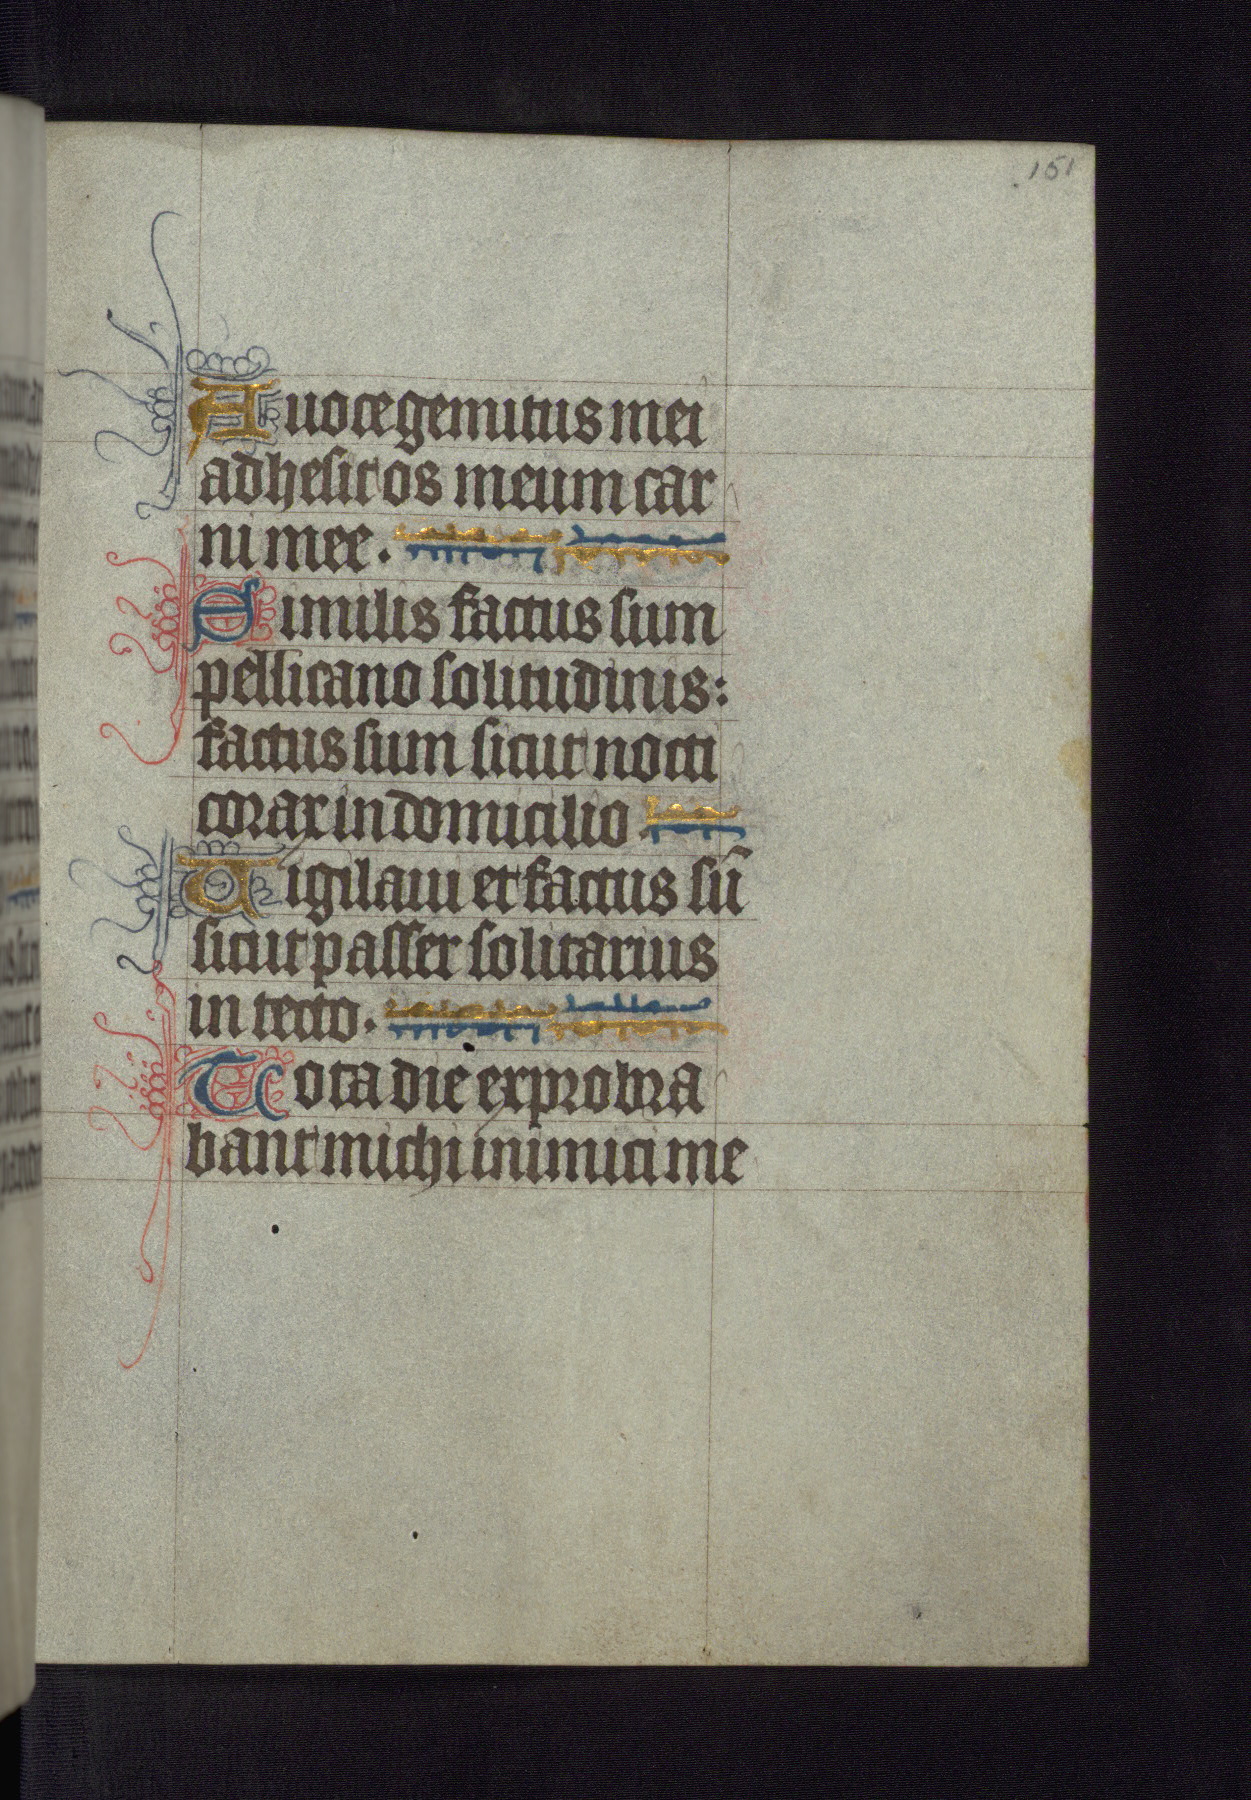 151
A uoce gemitus mei
adhesit os meum car
ni mee.
Similis factus sum
pellicano solitudinis:
factus sum sicut nocti
corax in domicilio
Uigilaui et factus sū
sicut passer solitarius
in tecto.
Tota die exprobra
bant michi inimici me